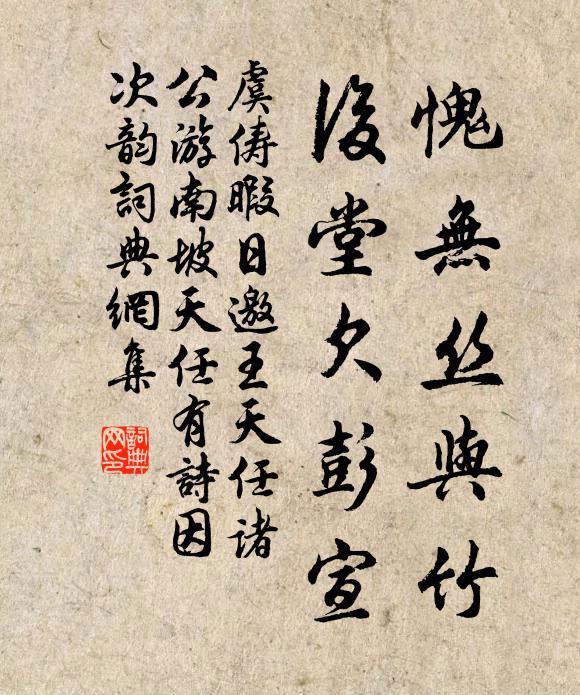 愧無丝與竹
後堂欠彭宣
虞儔暇日邀王天任諸
公游南坡天任有詩因
次韵詞典網集
詞典
网印